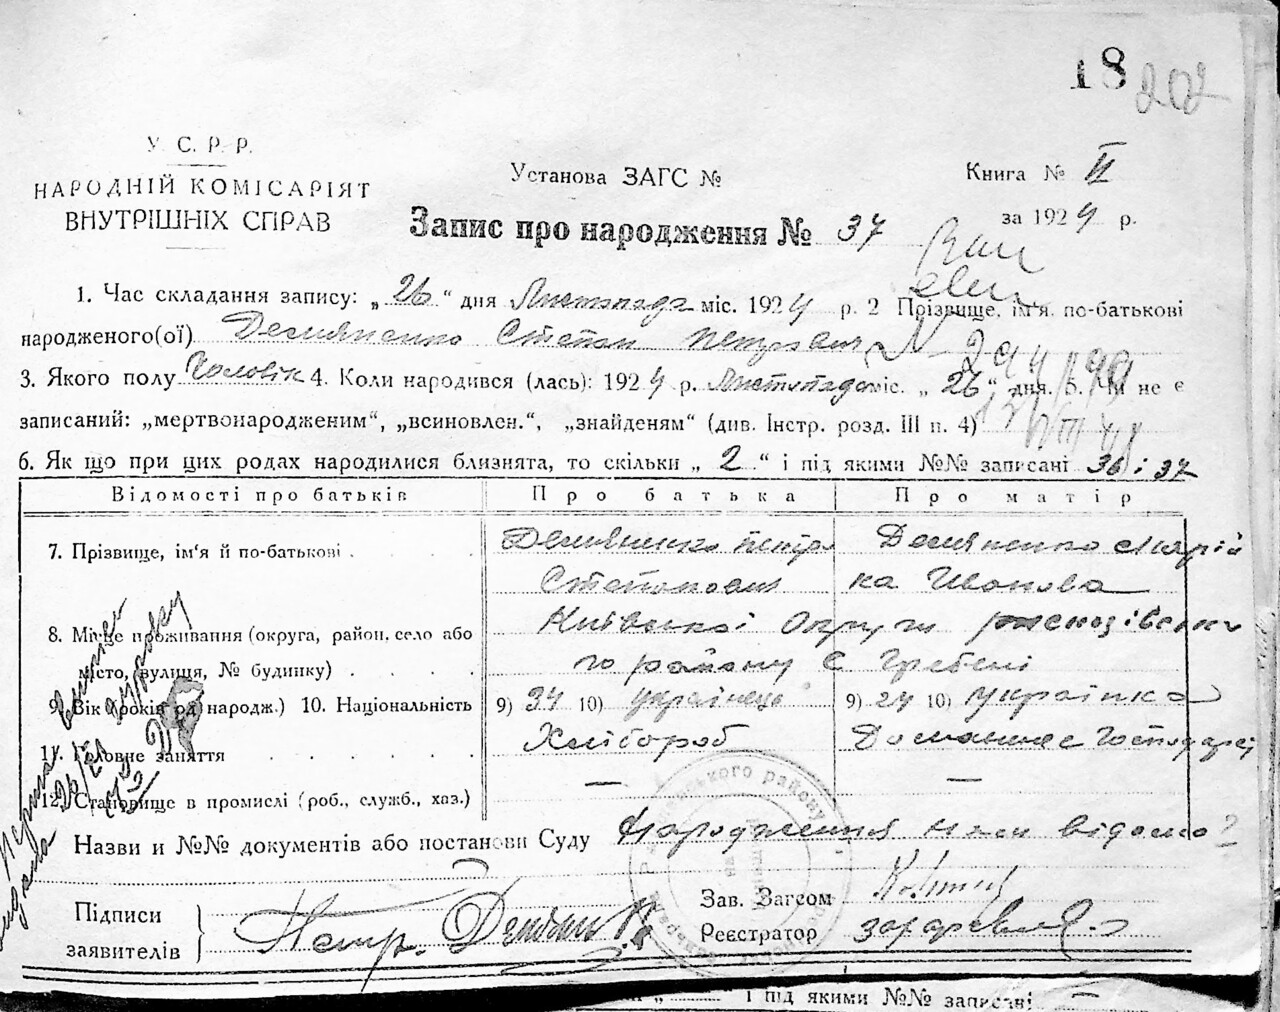 18 202
У. С. Р. Р.
НАРОДНІЙ КОМІСАРІЯТ
ВНУТРІШНІХ СПРАВ
Установа ЗАГС №
Книга № II
за 1924 р.
Запис про народження № 37
1. Час складання запису: „ 26 “ дня Листопада міс. 1924 р. 2 Прізвище, ім'я, по-батькові
народженого(ої) Демяненко Степан Петрович
3. Якого полу Чоловік 4. Коли народився (лась): 1924 р. Листопада міс. „ 26 “ дня. 5. Чи не є
записаний: „мертвонародженим“, „всиновлен.“, „знайденям“ (див. Інстр. розд. III п. 4)
6. Як що при цих родах народилися близнята, то скільки „ 2 “ і під якими №№ записані 36 і 37
Відомості про батьків Про батька Про матір
7. Прізвище, ім'я й по-батькові . . . . Демяненко Петро Демяненко Марій
Степанович ка Иванова
8. Місце проживання (округа, район, село або Київської Округи
місто, вулиця, № будинку) . . . . го району с Гребені
9. Вік (років од народж.) 10. Національність 9) 34 10) українець 9) 24 10) українка
11. Головне заняття . . . . . Хлібороб Домашнє Господарс
12. Становище в промислі (роб., служб., хаз.) — —
Назви и №№ документів або постанови Суду народження нам відомо
Підписи
заявителів
Петр.
Зав. Загсом
Реєстратор
і під якими №№ записані —